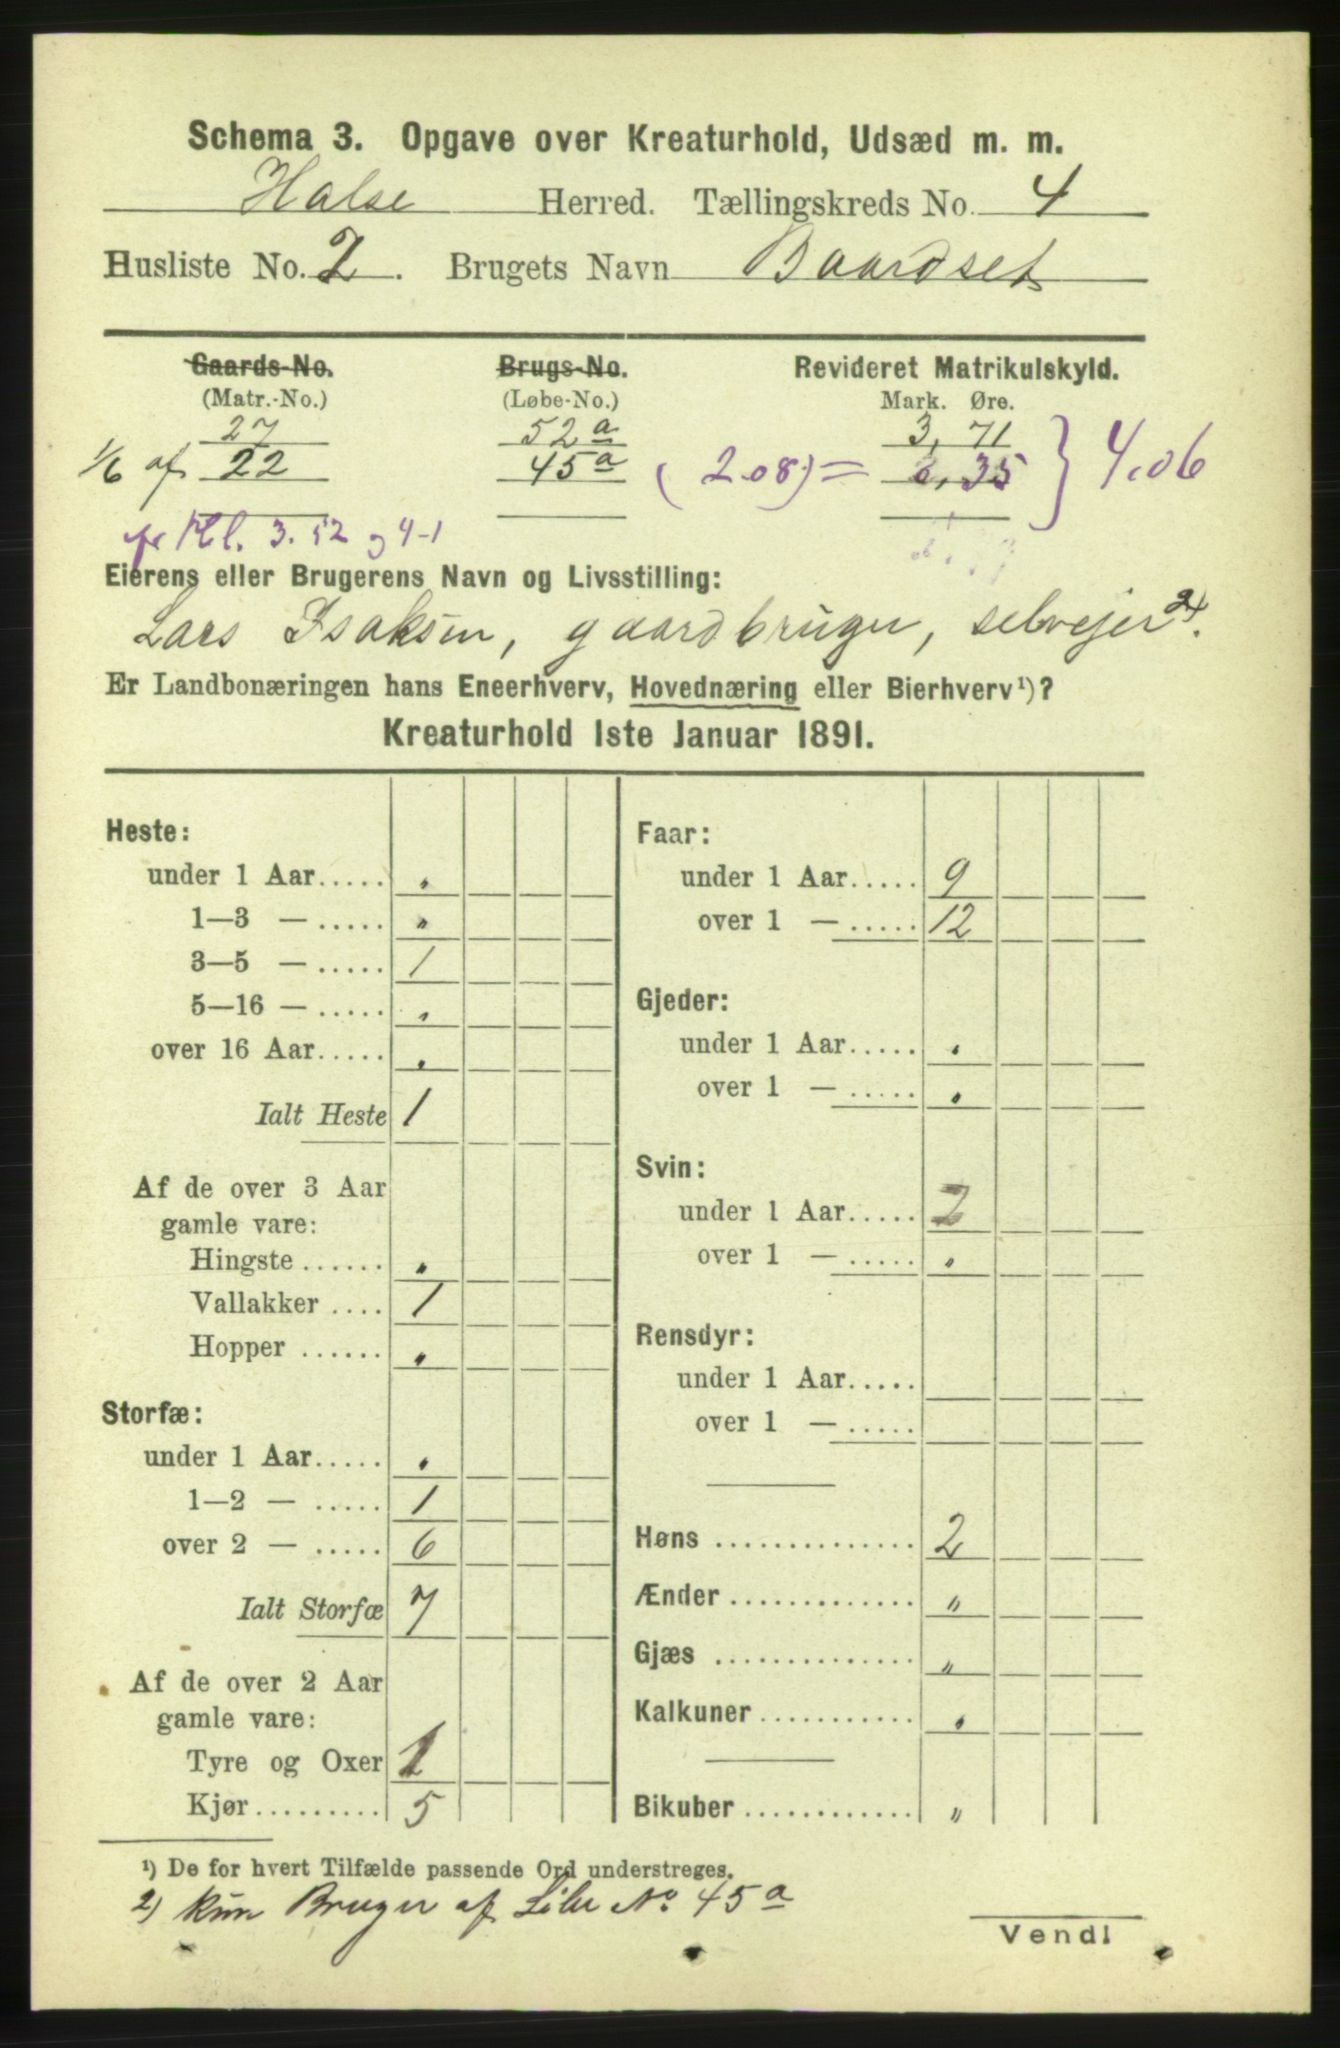 Schema 3. Opgave over Kreaturhold, Udsæd m. m.
Halse Herred. Tællingskreds No. 4
Husliste No. 2. Brugets Navn Baardset
Gaards-No. Brugs-No. Revideret Matrikulskyld.
(Matr.-No.) (Løbe-No.) Mark. Øre.
27 52a 3,71
1/6 af 22 45a (2.08) = ,35 } 4.06
3. 52 og 4-1
Eierens eller Brugerens Navn og Livsstilling:
Lars Isaksen, gaardbruger, selvejer 2).
Er Landbonæringen hans Eneerhverv, Hovednæring eller Bierhverv¹)?
Kreaturhold 1ste Januar 1891.
Heste:
under 1 Aar..... „
1—3 — ..... „
3—5 — ..... 1
5—16 — ..... „
over 16 Aar..... „
Ialt Heste 1
Af de over 3 Aar
gamle vare:
Hingste ...... „
Vallakker .... 1
Hopper ...... „
Storfæ:
under 1 Aar..... „
1—2 — ..... 1
over 2 — ..... 6
Ialt Storfæ 7
Af de over 2 Aar
gamle vare:
Tyre og Oxer 1
Kjør......... 5
Faar:
under 1 Aar..... 9
over 1 — ..... 12
Gjeder:
under 1 Aar..... „
over 1 — ..... „
Svin:
under 1 Aar..... 2
over 1 — ..... „
Rensdyr:
under 1 Aar.....
over 1 — .....
Høns .............. 2
Ænder ............. „
Gjæs .............. „
Kalkuner ........... „
Bikuber ............ „
¹) De for hvert Tilfælde passende Ord understreges.
2) kun Bruger af Løbe No. 45a
Vend!